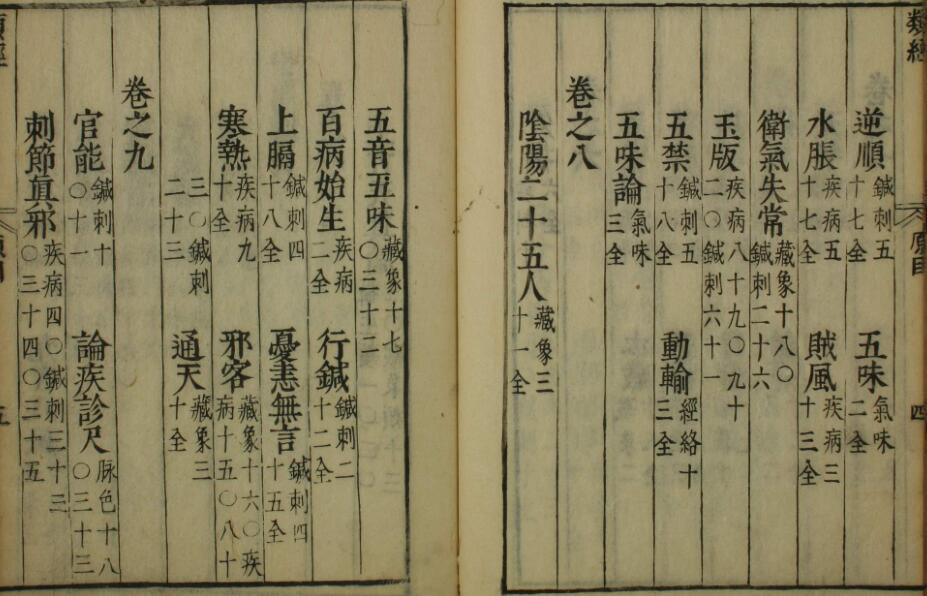 類經
原目
四
逆順 鍼刺五十七全 五味 氣味二全
水脹 疾病五十七全 賊風 疾病三十三全
衛氣失常 藏象十八〇鍼刺二十六
玉版 疾病八十九〇九十二〇鍼刺六十一
五禁 鍼刺五十八全 動輸 經絡十三全
五味論 氣味三全
卷之八
陰陽二十五人 藏象三十一全
五音五味 藏象十七〇三十二
百病始生 疾病二全 行鍼 鍼刺二十二全
上膈 鍼刺四十八全 憂恚無言 鍼刺四十五全
寒熱 疾病九十全 邪客 藏象十六〇疾病十五〇八十
三〇鍼刺二十三 通天 藏象三十全
卷之九
官能 鍼刺十〇十一 論疾診尺 脉色十八〇三十三
刺節眞邪 疾病四〇鍼刺三十三〇三十四〇三十五
五